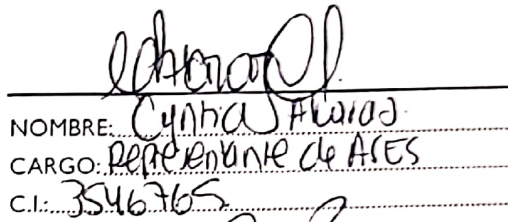 NOMBRE: Cynthia
CARGO: Representante de ASES
C.I.: 3546765